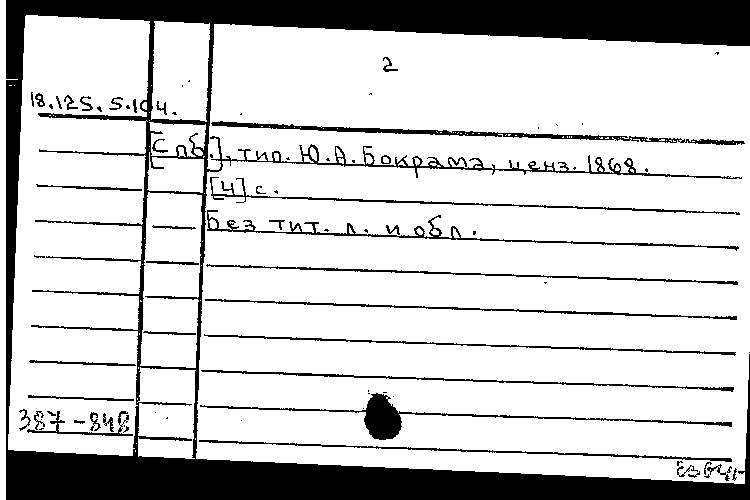 2
18.125.5.104.
[Спб.], тип. Ю.А. Бокрама, ценз. 1868.
[4] с.
Без тит. л. и обл.
387-848